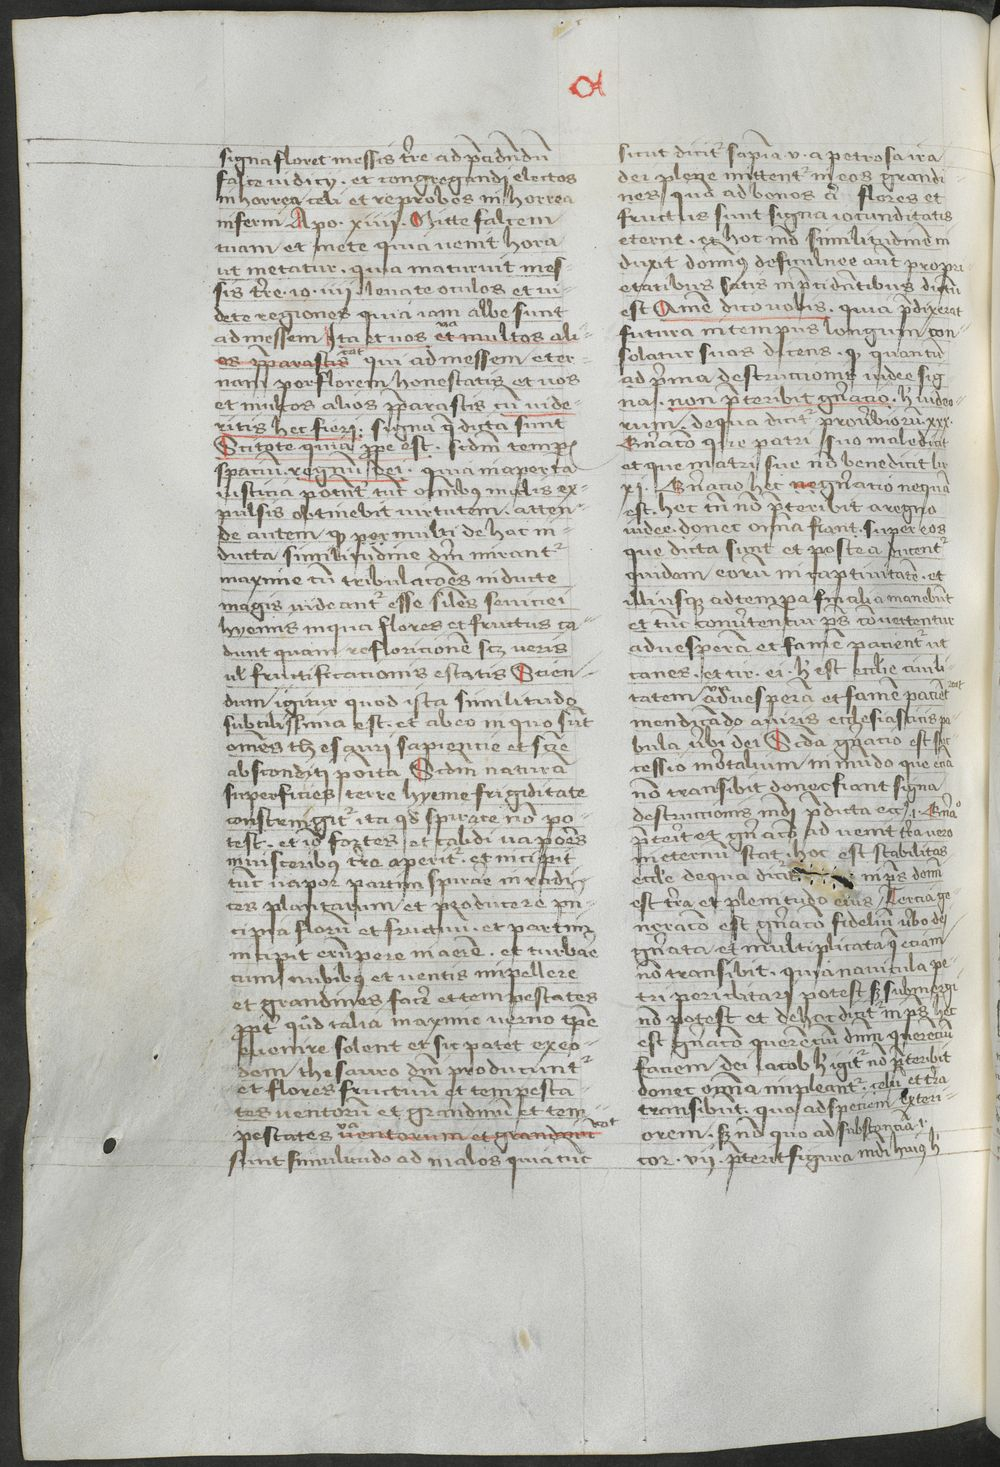 signa floret messis tr̄re ad p̄cidndū
falce iudicij . et congregandi electos
in horrea celi et reprobos in horrea
inferni Apo . xiiij . Mitte falcem
tuam et mete quia uenit hora
ut metatur . quia maturuit mes-
sis tr̄re . io . iiij leuate oculos et ui-
dete regiones quia iam albe sunt
ad messem Ita et uos et multos ali-
os p̄parastis qui ad messem eter-
nam per florem honestatis et uos
et multos alios p̄parastis cū uide-
ritis hec fieri . signa q̄ dicta sunt
Scitote quia ꝓpe est . scdm temp9
spaciū . regnū dei . quia in aperta
iusticia potent tūc omībus malis ex-
pulsis obtinebit uirtutem . atten-
de autem ꝙ permulti de hac in-
ducta similitudine dnī mirant᷑
maxime cū tribulacoēs inducte
magis uideant᷑ esse siles seuiciei
hyemis in qua flores et fructus ca-
dunt quam refloricionē scꝫ ueris
ul fructificacionis estatis Scien-
dum igitur quod ista similitudo
subtilissima est . et ab eo in quo sūt
omēs thesauri sapiencie et sciē
absconditi poīta Scdm naturā
superficies terre hyeme frigiditate
constringit᷑ ita qd spirare nō po-
test . et iō fortes et calidi uapoēs
in uisceribus tr̄e aperit᷑ . et incipit
tūc uapor partim spirare in radi-
ces plantarum et producere pn-
cipia florū et fructuū . et partim
incipit erūpere in aerē . et turbare
cum nubibus et uentis impellere
et grandines facē et tempestates
ꝓpt qd talia maxime uerno tpē
euenire solent et sic patet ex eo-
dem thesauro dnī producunt᷑
et flores fructuū et tempesta-
tes uentorū et grandinū et tem-
pestates uentorum et grandini
sunt similitudo ad malos quia tūc
sicut dicit᷑ sapīa . v . a petrosa ira
dei plene mittent᷑ in eos grandi-
nes , quo ad bonos flores et
fructus sunt signa iocunditatis
eterne . et hoc mō similitudinē in
duxit dominus de ficulnee aut propri
etatibus satis in p̄cidentibus dictū
est Amē dico uobis . quia p̄dixerat
futura in tempus longum con-
solatur suos dicens . ꝙ quantū
ad p̄ma destruccionis iudee sig-
na . non p̄teribit gn̄acio . h iudeo-
rum . de qua dicit᷑ prouerbiorū xxx .
Gn̄acō que patri suo maledicit
et que matri sue nō benedicit lu
xj . Gn̄acio hec gn̄acio nequā
est . hec tn̄ nō p̄teribit a regno
iudee . donec omīa fiant . super eos
que dicta sunt et postea ducent᷑
quidam eorū in captiuitatē . et
illi usqꝫ ad tempora finalia manebūt
et tūc conu̇tentur ps conuertentur
ad uesperā et famē pacient᷑ ut
canes . et cir . ei . h est ecclie ciuili-
tatem ad uesperā et famē pacient
mendicādo a uiris ecclesiasticis pa-
bula u̇bi dei Scda gn̄acio est suc-
cessio mortalium in mundo que ecīa
nō transibit donec fiant signa
destruccionis mdi p̄dicta ecc᷑ . 1 . Gn̄a
p̄terit et gn̄acō aduenit tr̄ra uero
in eternū stat . hoc est stabilitas
eccle de qua dicit᷑ in ps domī
est tr̄ra et plenitudo eius Tercia ge-
neracō est gn̄acō fideliū u̇bo dei
gn̄ata et multiplicata q̄ eciam
nō transibit . quia nauicula pe-
tri periclitari potest sꝫ submergi
nō potest et de hoc dicit᷑ in ps hec
est gn̄acō querēciū dnm querēciū
faciem dei iacob h igit᷑ nō p̄teribit
donec omīa impleant᷑ . celū et tr̄ra
transibūt . quo ad speciem exteri-
orem . sꝫ nō quo ad substanciā . 1 .
cor . vij . p̄terit figura mdi huius h